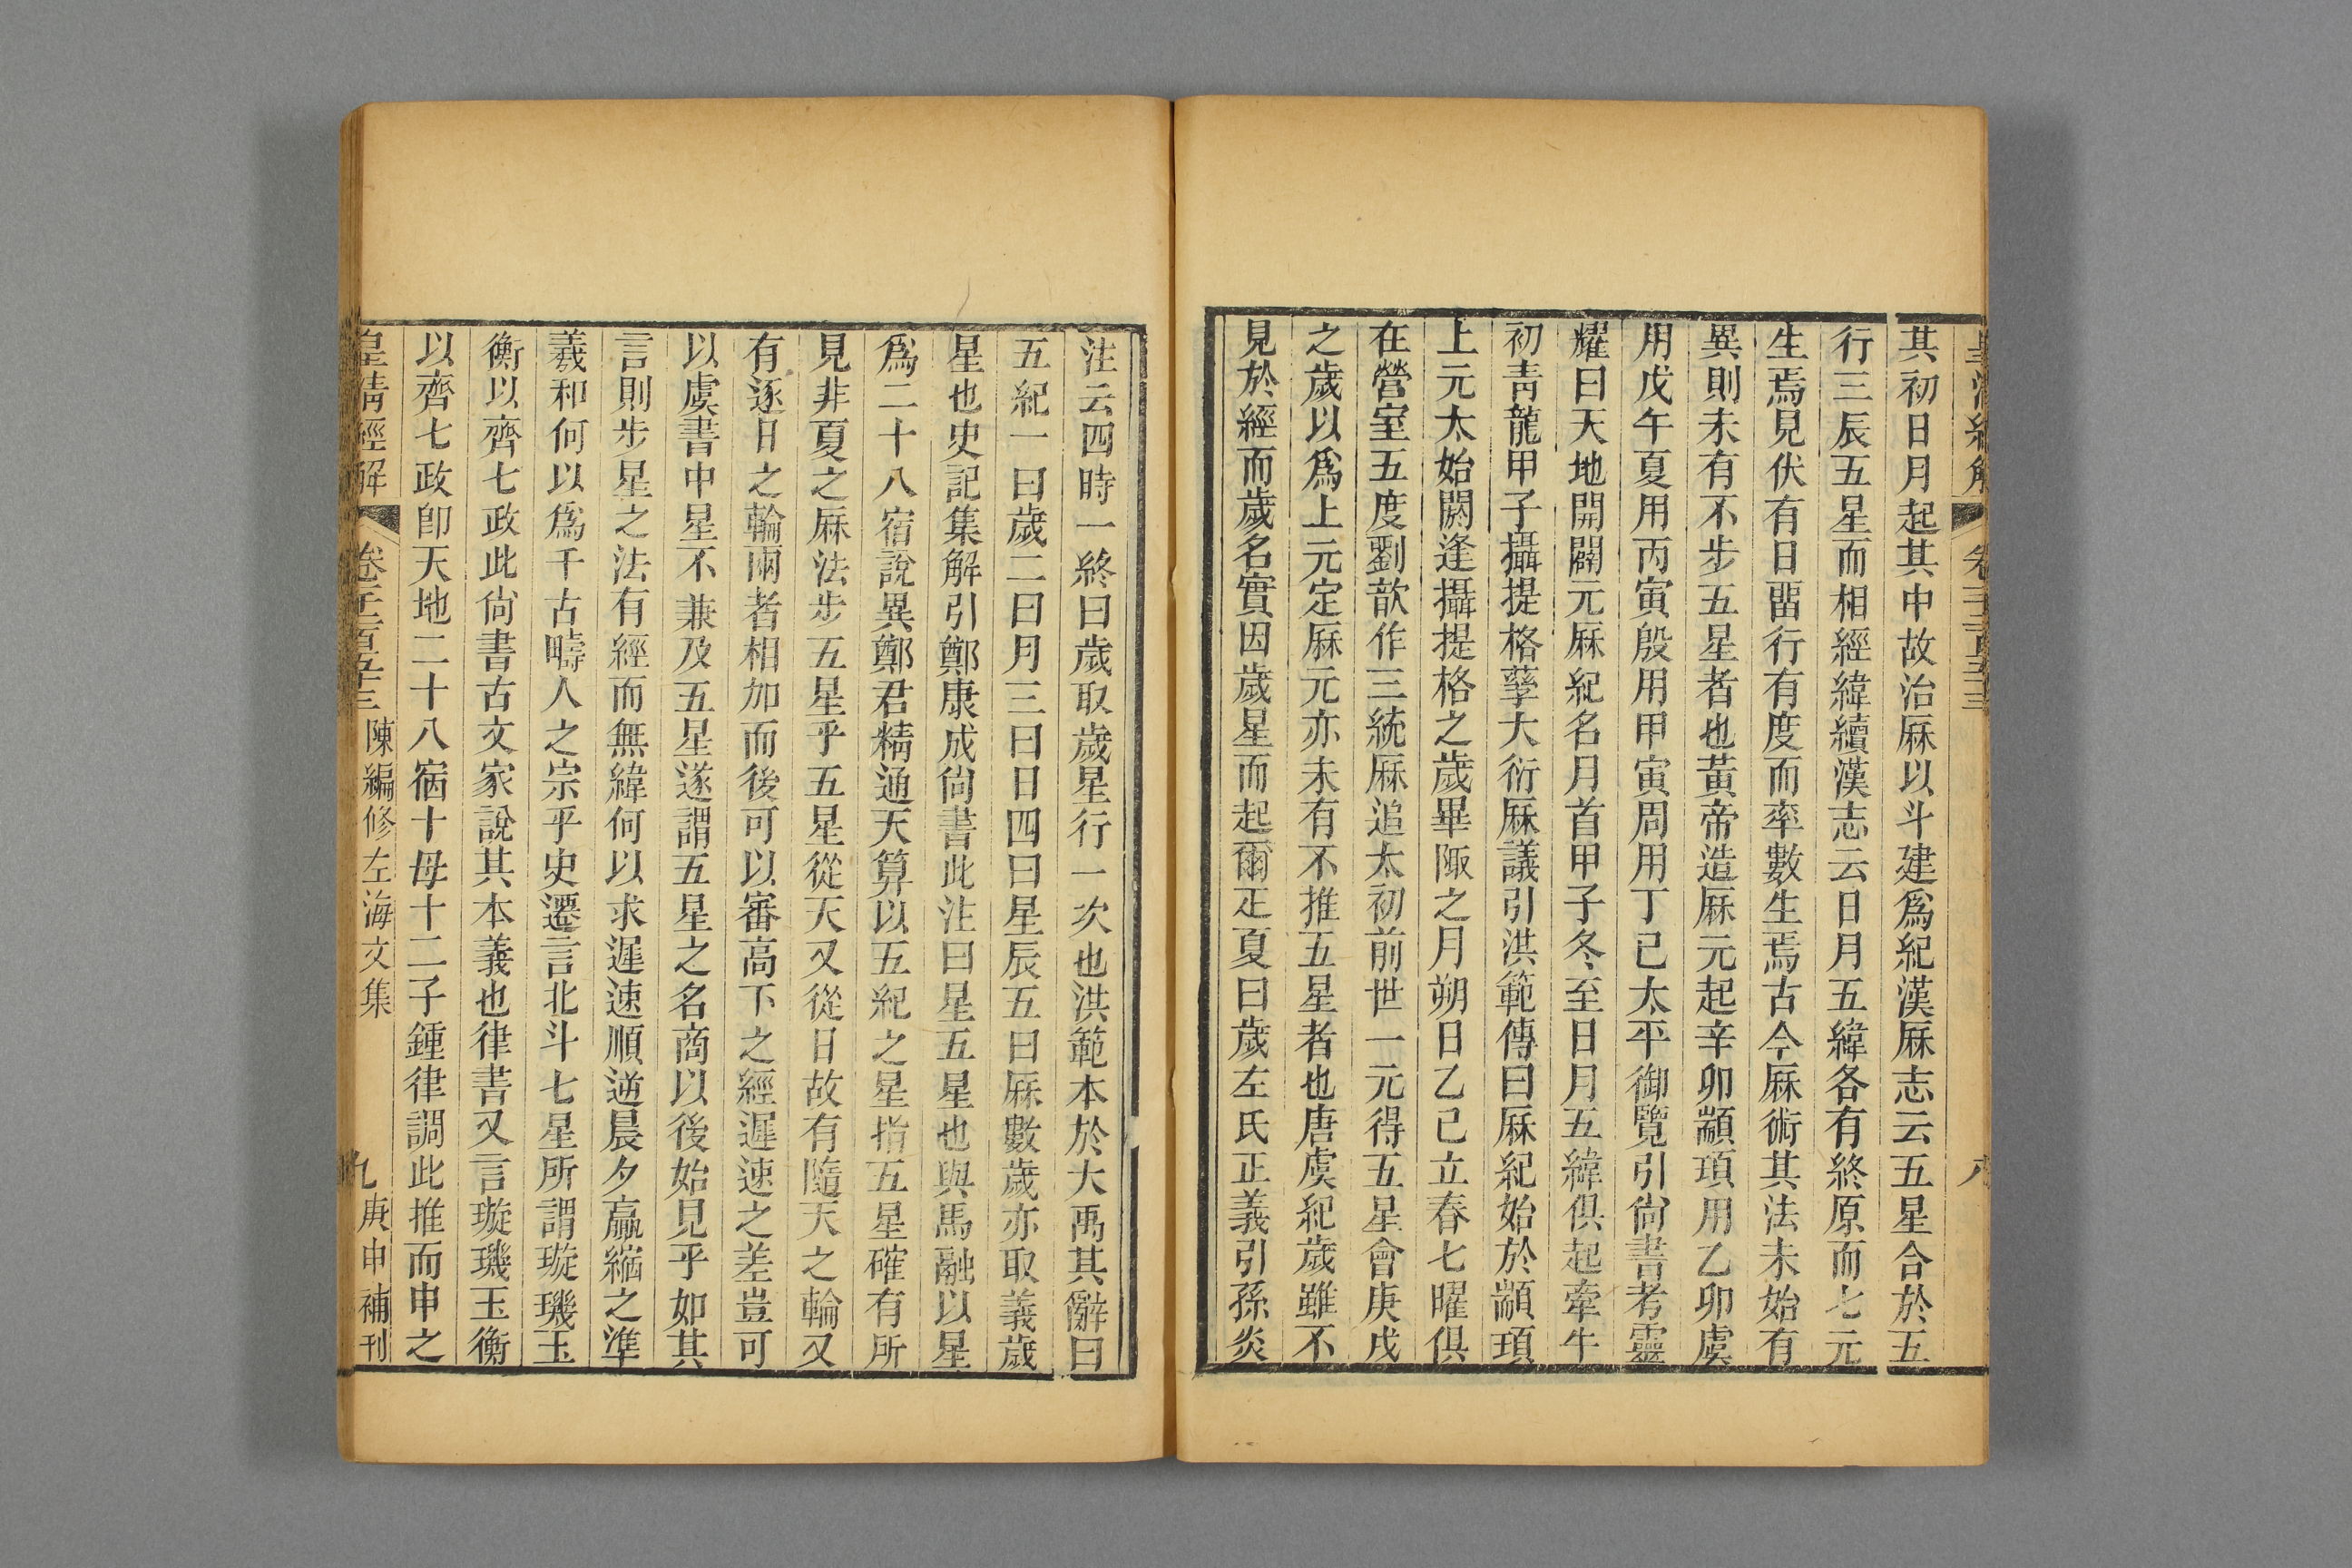 皇清經解
卷千二百五十三
八
其初日月起其中故治厤以斗建爲紀漢厤志云五星合於五
行三辰五星而相經緯續漢志云日月五緯各有終原而七元
生焉見伏有日畱行有度而率數生焉古今厤術其法未始有
異則未有不步五星者也黃帝造厤元起辛卯顓頊用乙卯虞
用戊午夏用丙寅殷用甲寅周用丁巳太平御覽引尙書考靈
耀曰天地開闢元厤紀名月首甲子冬至日月五緯俱起牽牛
初青龍甲子攝提格孳大衍厤議引洪範傳曰厤紀始於顓頊
上元太始閼逢攝提格之歲畢陬之月朔日乙已立春七曜俱
在營室五度劉歆作三統厤追太初前世一元得五星會庚戌
之歲以爲上元定厤元亦未有不推五星者也唐虞紀歲雖不
見於經而歲名實因歲星而起爾疋夏曰歲左氏正義引孫炎
注云四時一終曰歲取歲星行一次也洪範本於大禹其辭曰
五紀一曰歲二曰月三曰日四曰星辰五曰厤數歲亦取義歲
星也史記集解引鄭康成尙書此注曰星五星也與馬融以星
爲二十八宿說異鄭君精通天算以五紀之星指五星確有所
見非夏之厤法步五星乎五星從天又從日故有隨天之輪又
有逐日之輪兩者相加而後可以審高下之經遲速之差豈可
以虞書中星不兼及五星遂謂五星之名商以後始見乎如其
言則步星之法有經而無緯何以求遲速順逆晨夕贏縮之準
羲和何以爲千古疇人之宗乎史遷言北斗七星所謂璇璣玉
衡以齊七政此尙書古文家說其本義也律書又言璇璣玉衡
以齊七政卽天地二十八宿十母十二子鍾律調此推而申之
皇清經解
卷千二百五十三
陳編修左海文集
九
庚申補刊